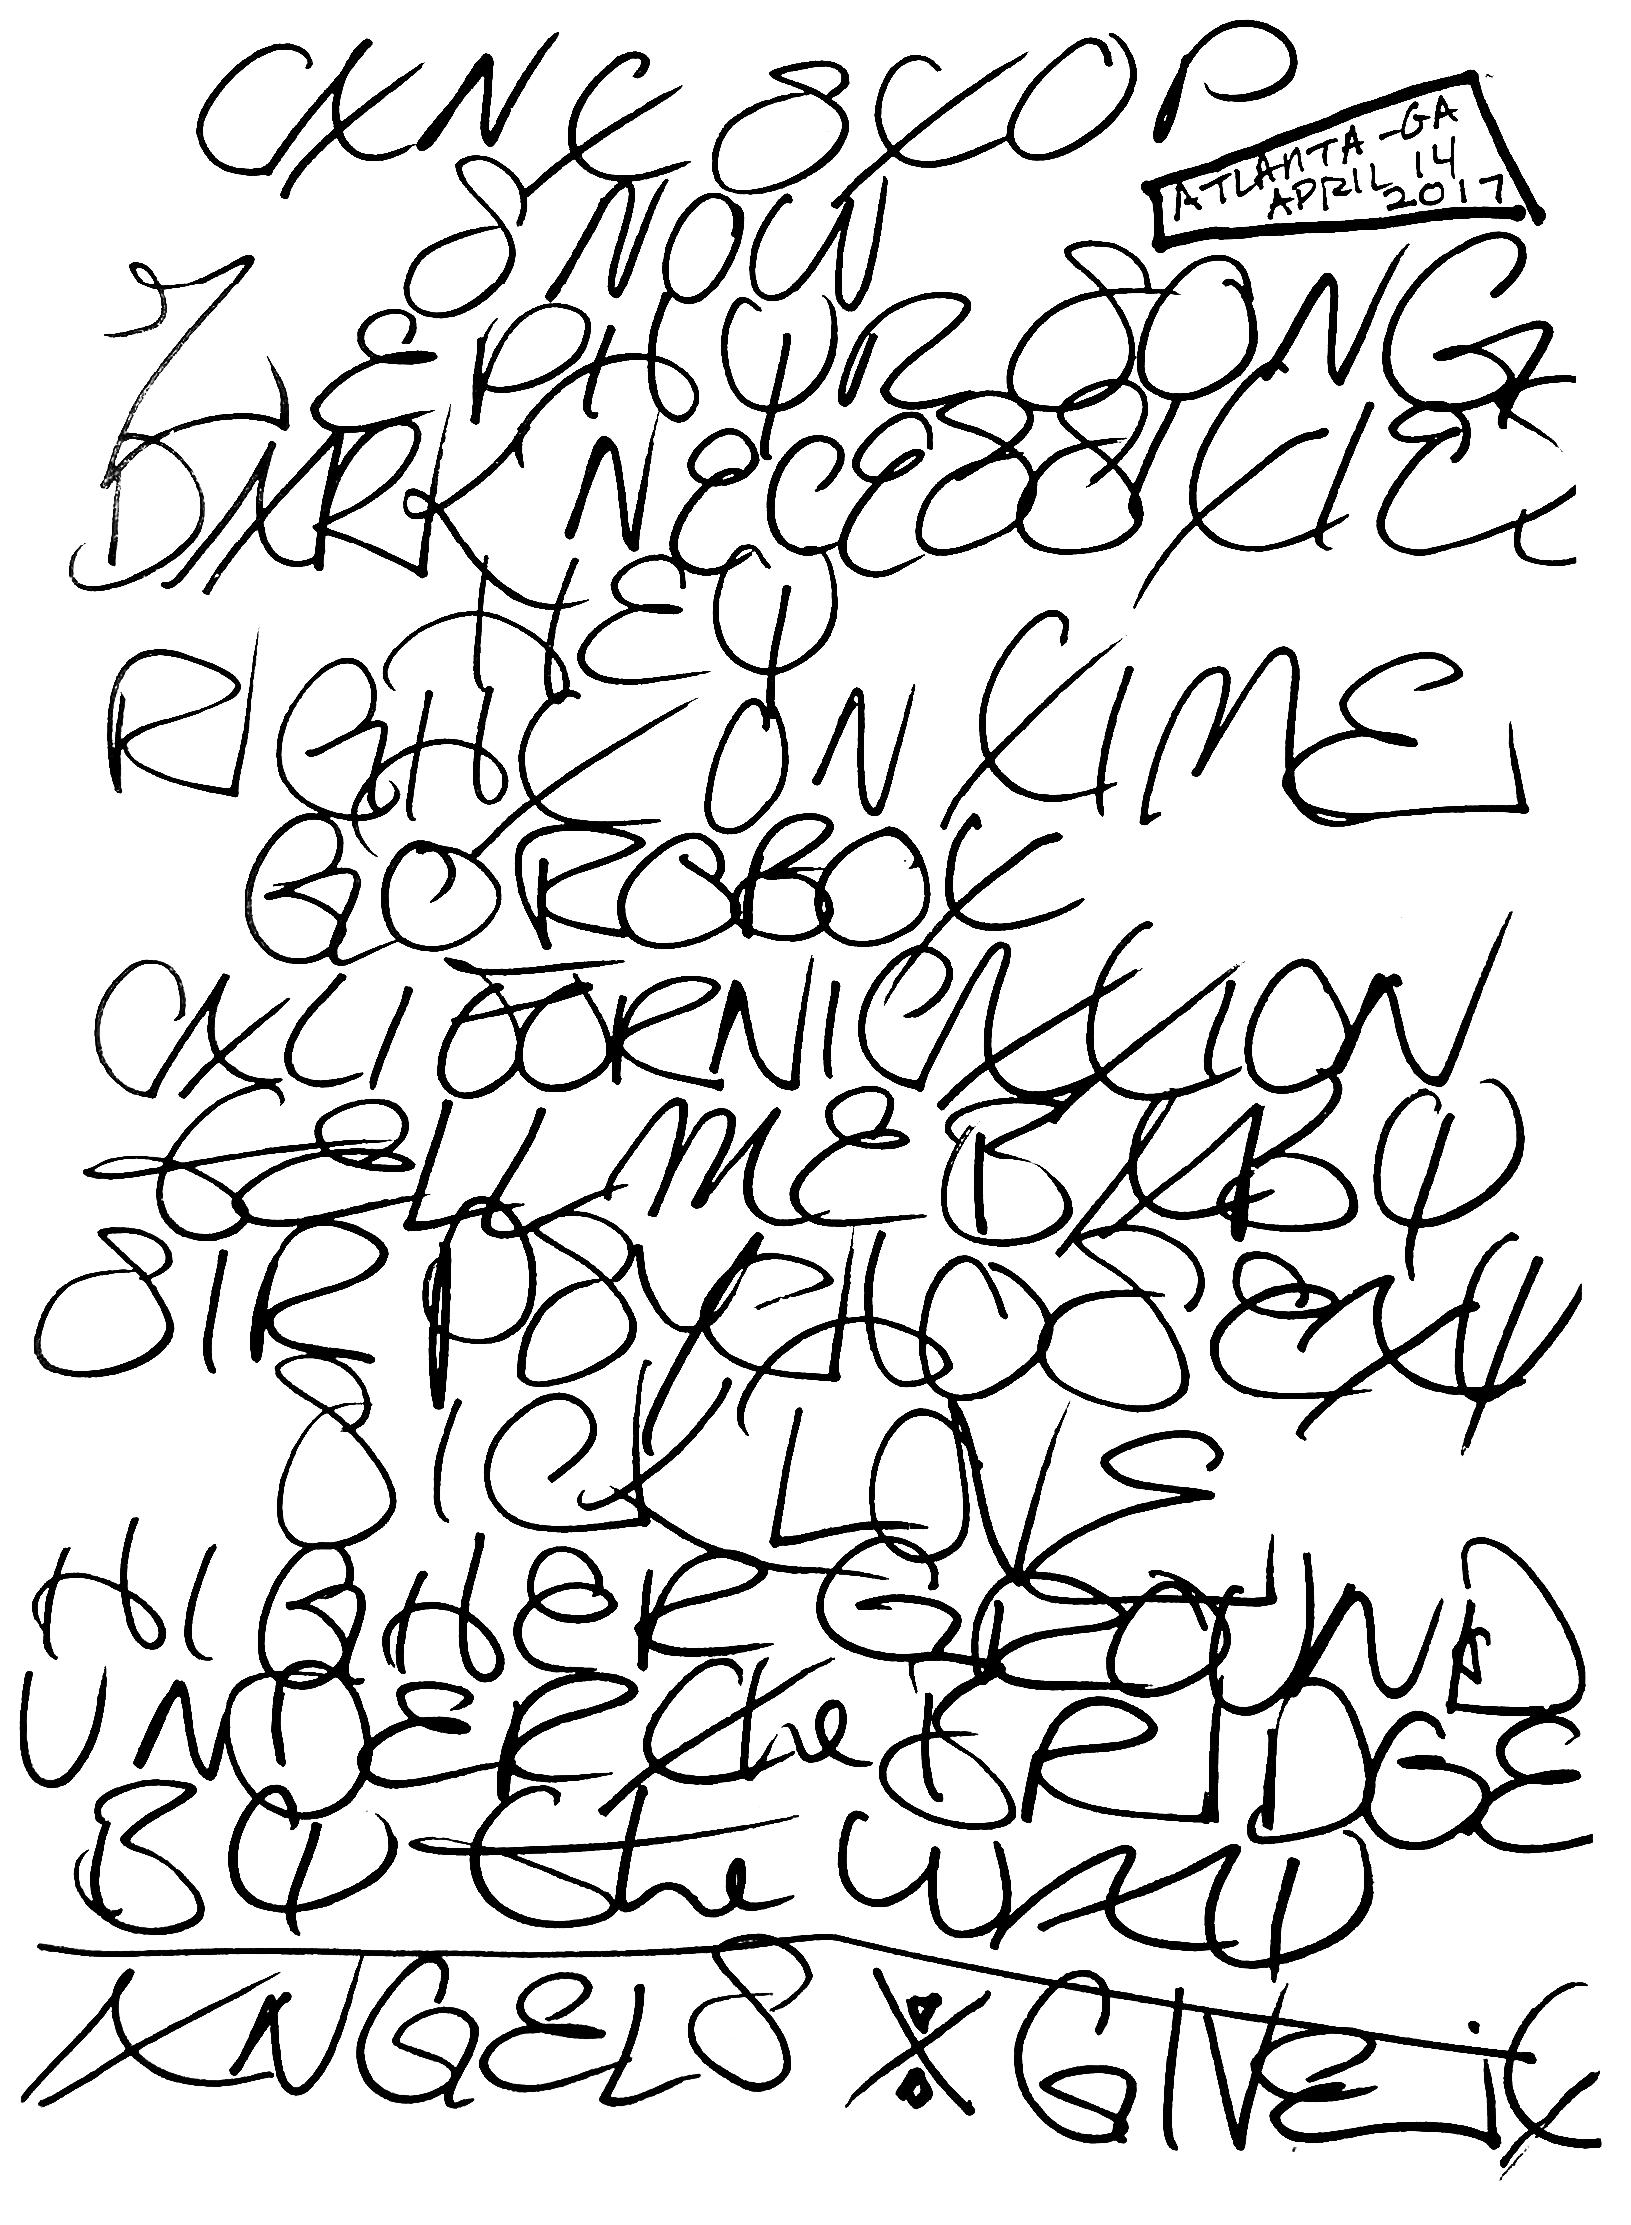 CANT STOP
ATLANTA - GA
APRIL 14
2017
SNOW
ZEPHYR SONG
DARK NECESSITIES
HEY
RIGHT ON TIME
GO ROBOT
CALIFORNICATION
TELL ME BABY
SIR PSYCHO SEXY
SICK LOVE
HIGHER GROUND
UNDER the BRIDGE
BY the WAY
ANGELS X GIVE iT